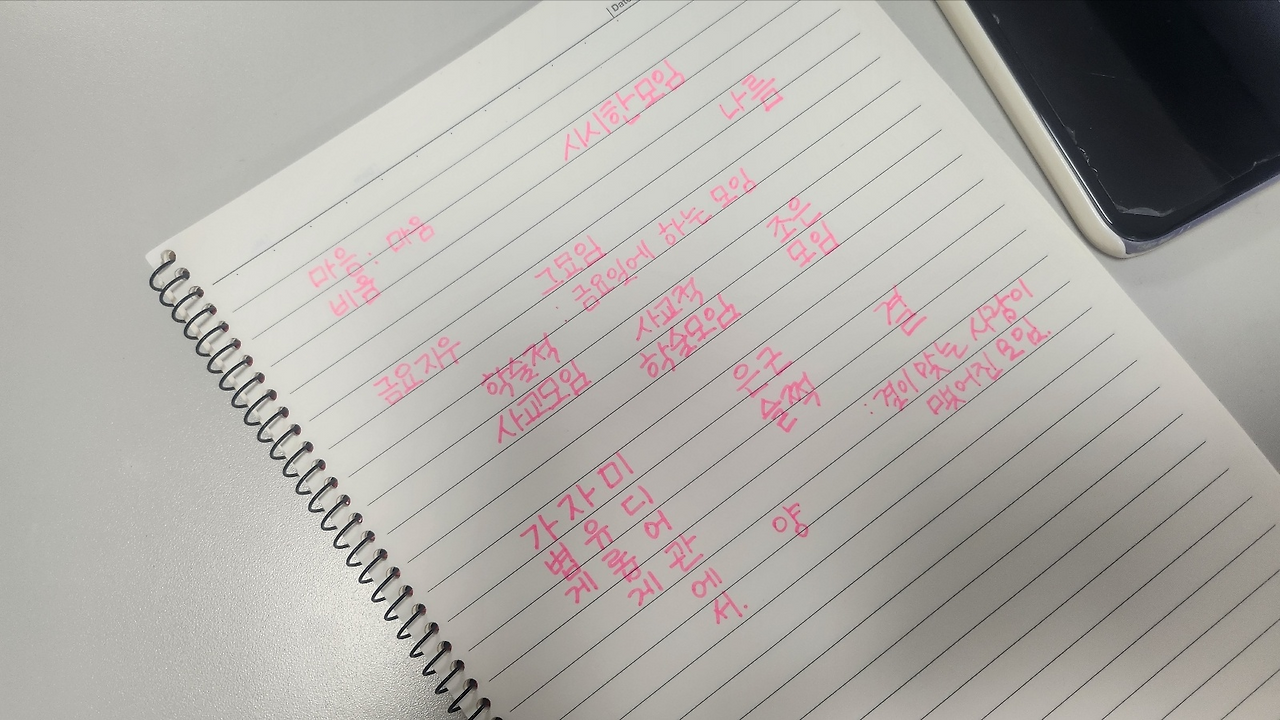 Date
시시한 모임
나름
마음 : 마음
비움
그모임
: 금요일에 하는 모임
좋은
모임
금요지우
학술적
사교모임
사교적
학술모임
은근
슬쩍
결
: 결이 맞는 사람이
맺어진 모임.
가 자 미
볍 유 디
게 롭 어
게 관
에
서.
양